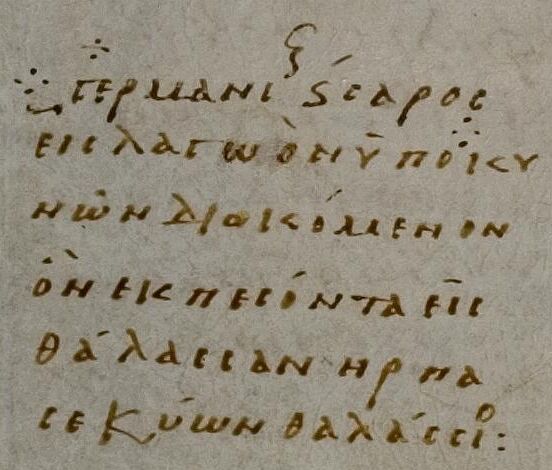 Γερμανι ϛ ϛαρος
εις λαγωὸν ὑπὸ κυ
νῶν διοκόμενον
ὃν εκπεσόντα εἰς
θάλασσαν ηρπα
σε κύων θαλάσσιο: